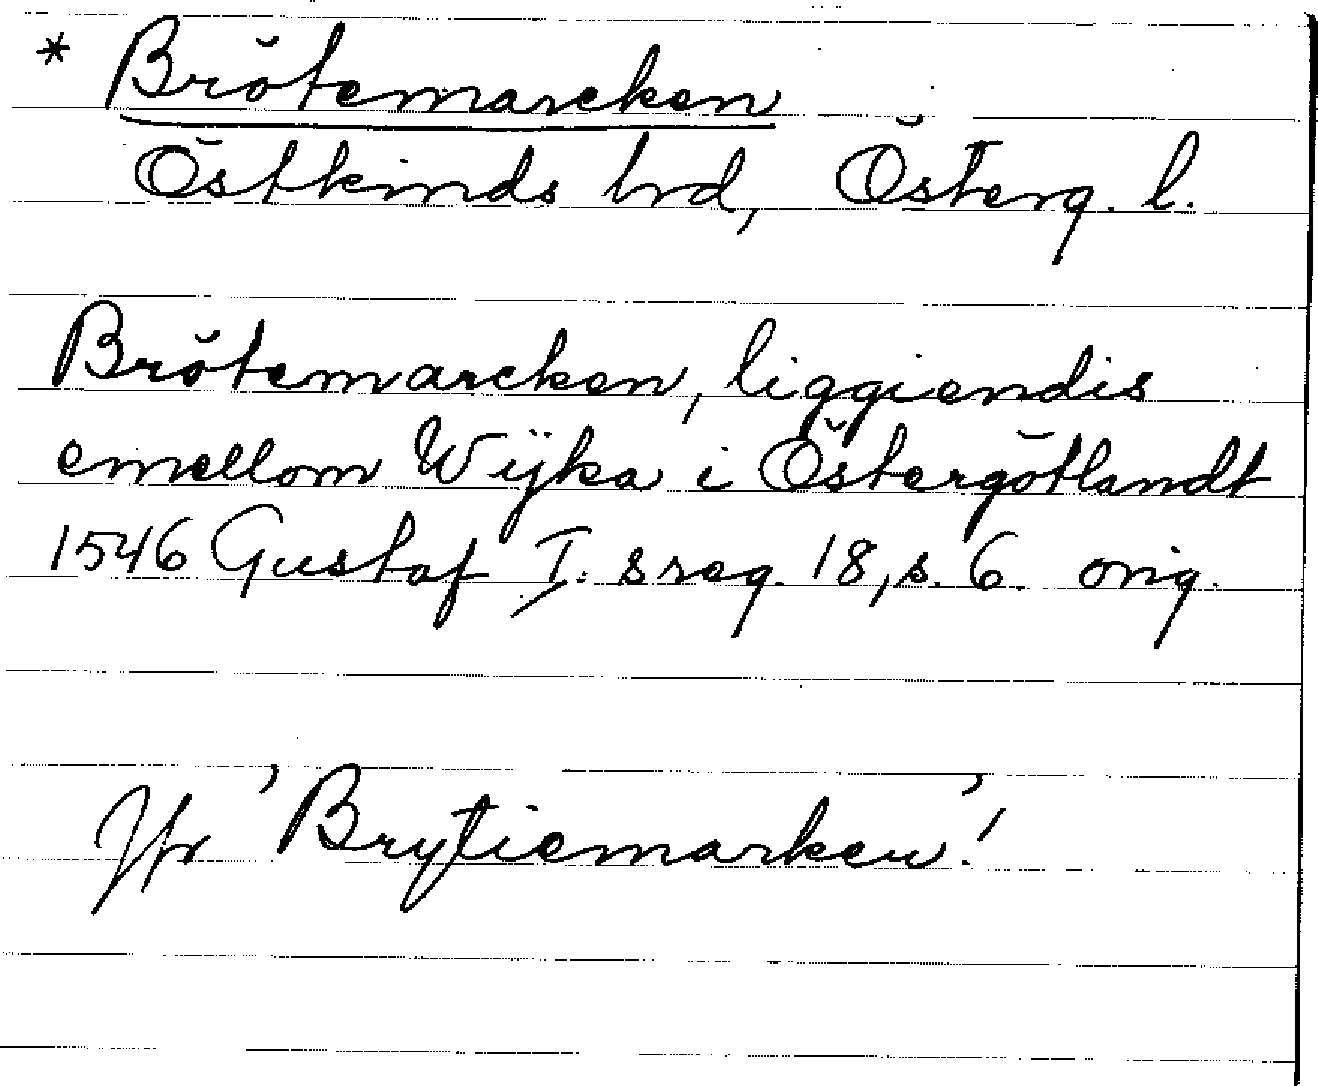 * Brötemarcken
Östkinds hrd, Österg. l.
Brötemarcken, liggiendis
emellom Wijka i Östergötlandt
1546 Gustaf I:s reg. 18, s. 6 orig.
Jfr 'Brytiemarken'!